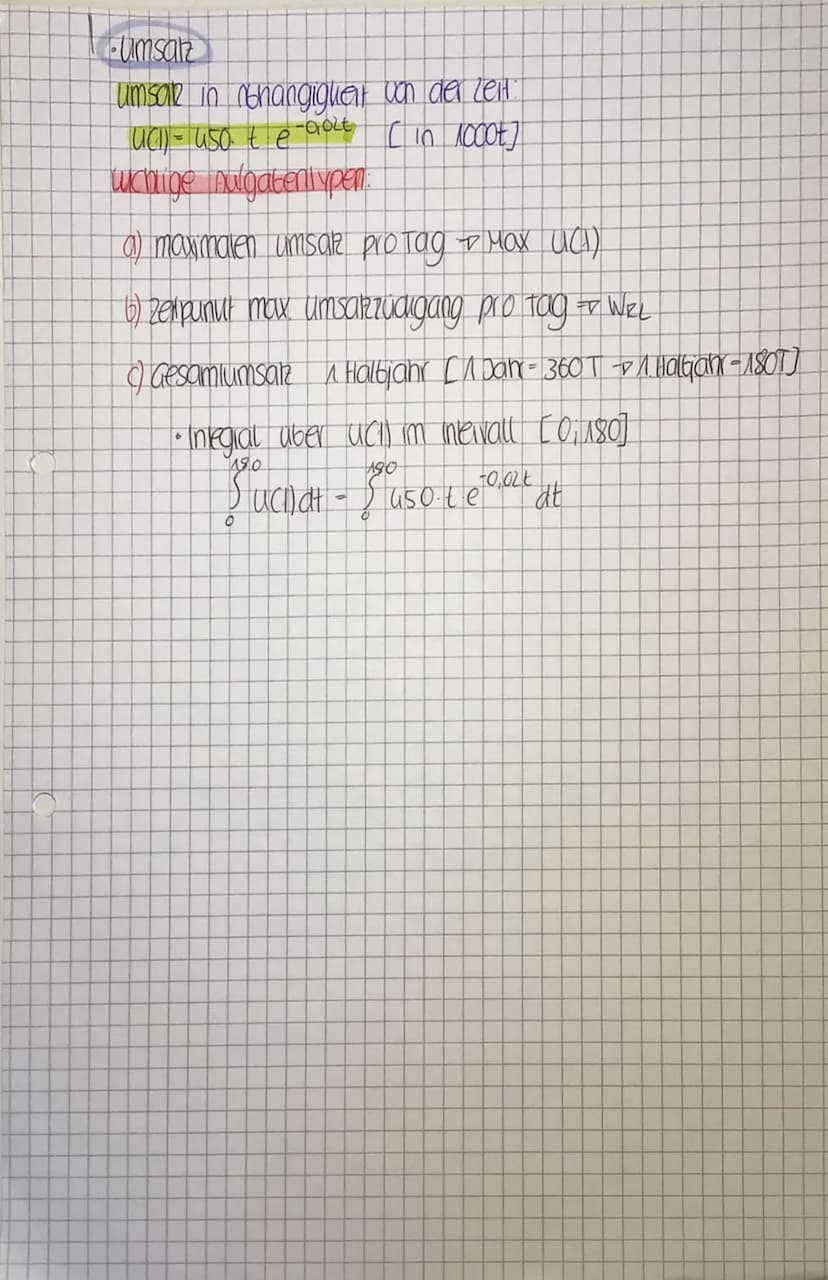 · Umsatz
Umsatz in Abhängigkeit von der Zeit:
U(t) = 450 · t e^-0,02t [in 1000t]
wichtige Aufgabentypen:
a) maximalen Umsatz pro Tag → Max U(t)
b) Zeitpunkt max. Umsatzrückgang pro Tag → WEL
c) Gesamtumsatz 1 Halbjahr [1 Jahr = 360T → 1. Halbjahr = 180T]
· Integral über U(t) im Intervall [0; 180]
∫₀¹⁸⁰ U(t)dt = ∫₀¹⁸⁰ 450 · t e^-0,02t dt